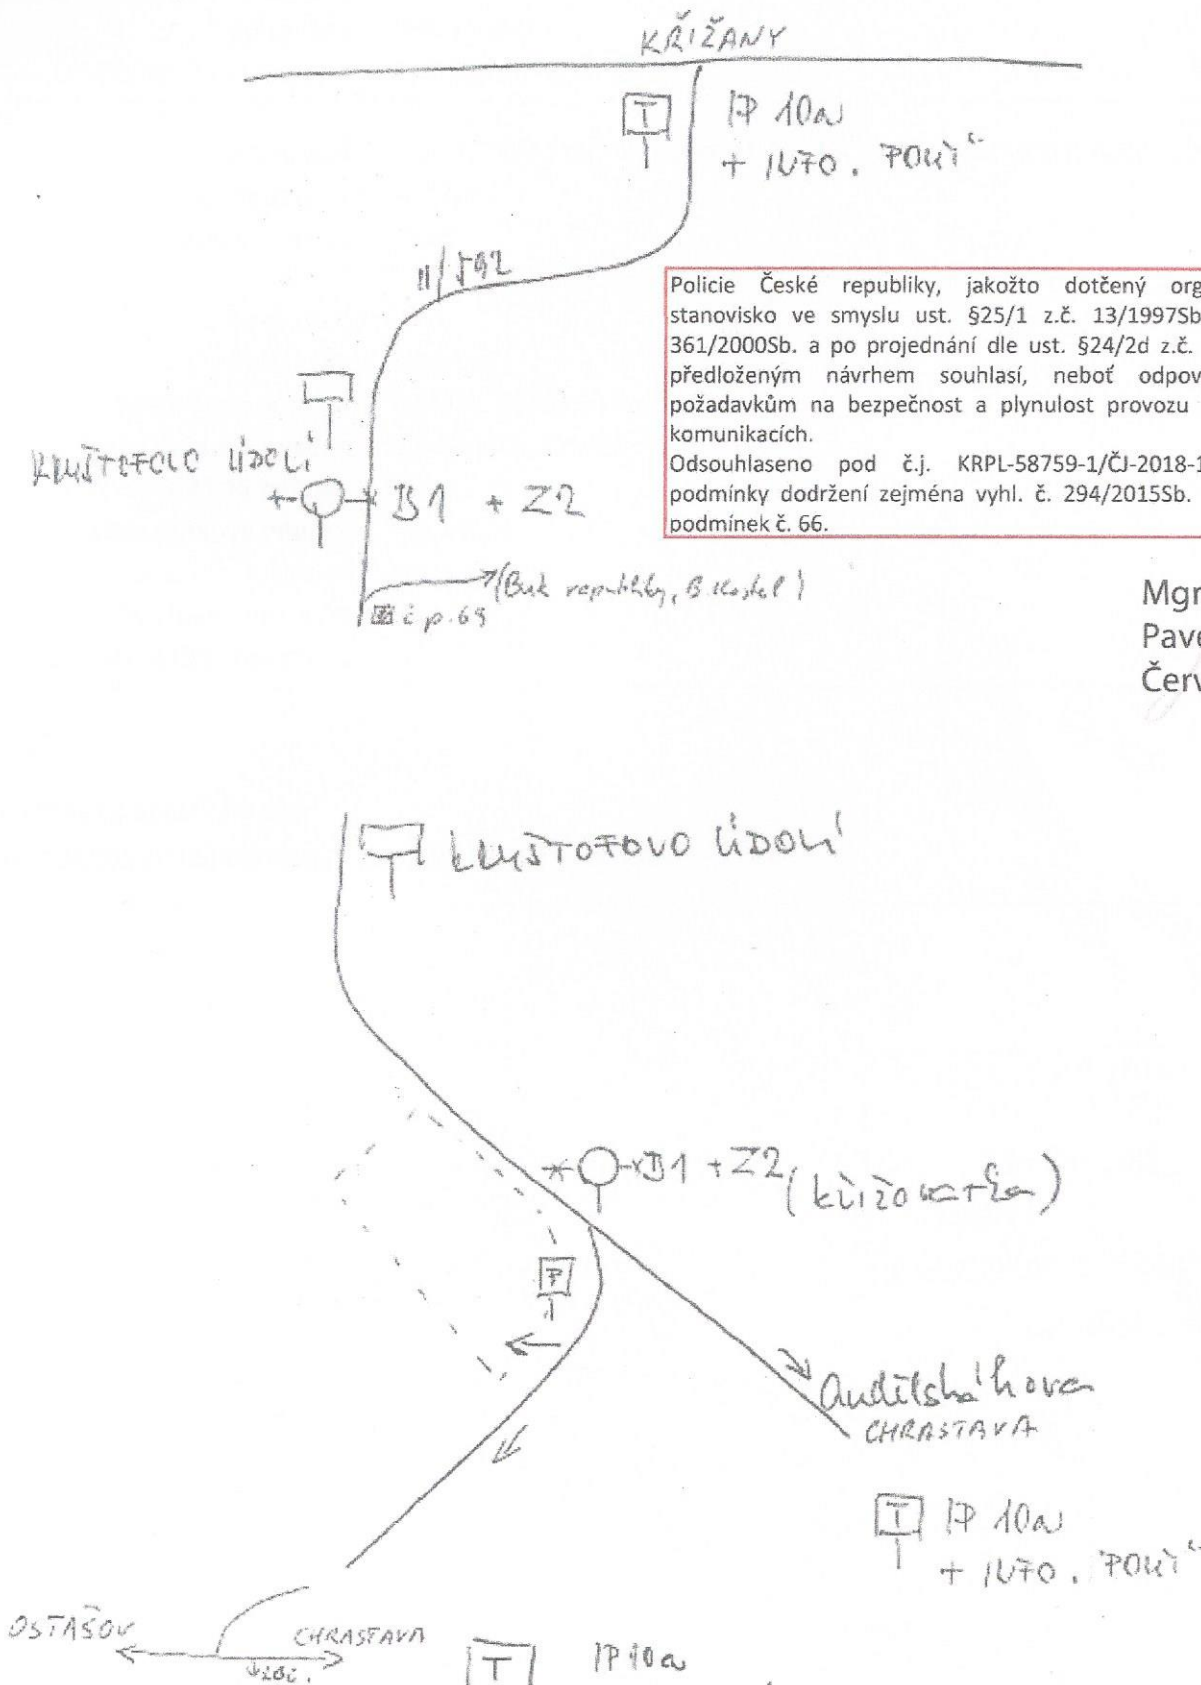 KŘIŽANY
T IP 10a
+ INFO. POUŤ
II/592
Policie České republiky, jakožto dotčený org
stanovisko ve smyslu ust. §25/1 z.č. 13/1997Sb
361/2000Sb. a po projednání dle ust. §24/2d z.č.
předloženým návrhem souhlasí, neboť odpov
požadavkům na bezpečnost a plynulost provozu
komunikacích.
Odsouhlaseno pod č.j. KRPL-58759-1/ČJ-2018-1
podmínky dodržení zejména vyhl. č. 294/2015Sb.
podmínek č. 66.
KRYŠTOFOVO ÚDOLÍ
B1 + Z2
(Buk republiky, B. Kostel)
č p. 69
Mgr
Pave
Červ
KRYŠTOFOVO ÚDOLÍ
B1 + Z2 (křižovatka)
P
Andělská hora
CHRASTAVA
T IP 10a
+ INFO. POUŤ
OSTAŠOV CHRASTAVA
T IP 10a